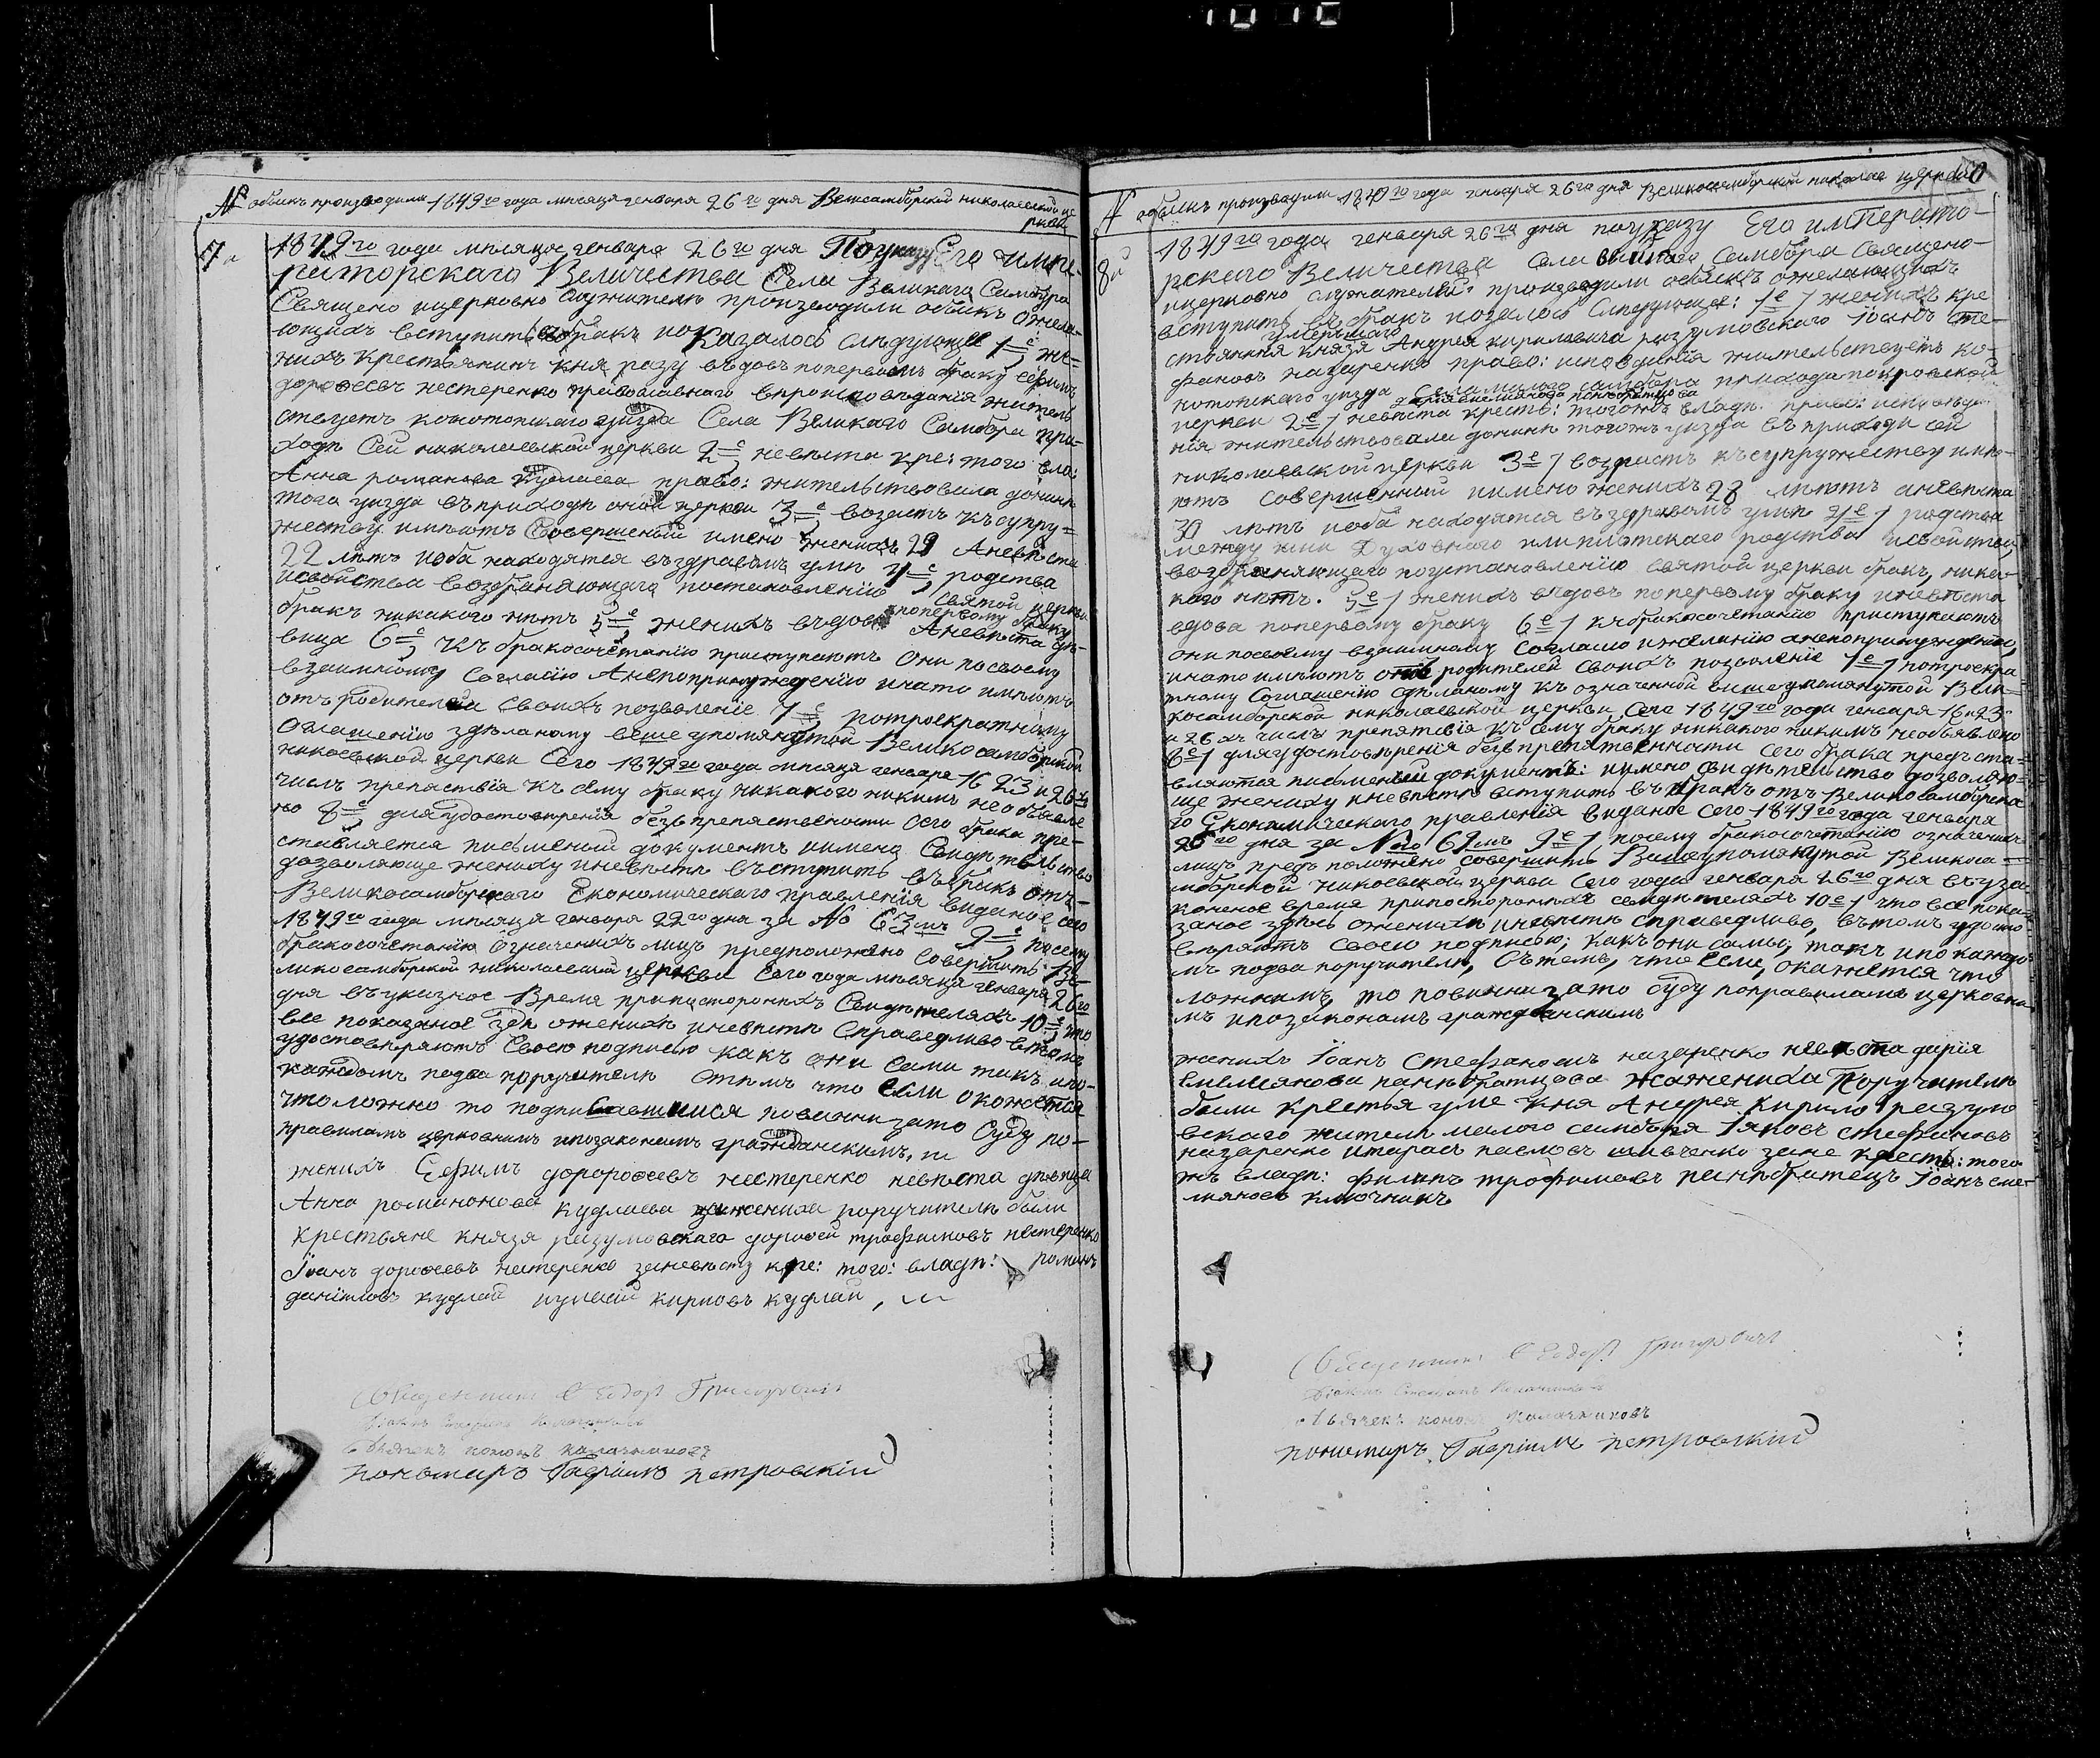 № обыкъ производили 1849го года мѣсяца генваря 26го дня Великсамборской николаевской це
ркви
7й
1849го года мѣсяца генваря 26го дня По указу Его импе-
раторскаго Величества Села Великаго Самбора
Священо ицерковно служители производили обыкъ ожела-
ющихъ вступить въ бракъ показалось слѣдующее 1е, же-
нихъ крестьянинъ кня разу вѣдовъ поперьвомъ браку ефимъ
дорофеевъ нестеренко православнаго вѣроисповѣданія житель
ствуетъ конотопскаго уѣзда Села Великаго Самбора при-
ходѣ Сей николаевской церкви 2е, невѣста кре: того вла:
Анна романова кудлаева право: жительствовала донинѣ
того уѣзда въ приходѣ оной церкви 3е, возастъ къ супру=
жеству имѣютъ Совершеный имено женихъ 29 Аневѣста
22 лѣтъ иоба находятся въ здравомъ умѣ 4е, родства
исвойства возбраняющаго постановленію Святой церкви
бракъ никакого нѣтъ 5е, женихъ вѣдовъ поперьвому браку Аневѣста дѣ-
вица 6е, Къ бракосочетанію приступаютъ Они по своему
взаимному Согласію Анепопринуждению инато имѣютъ
отъ родителей Своихъ позволеніе 7е, потроекратному
Оглашенію здѣланому више упомянутой Великосамборской
никоевской церкви Сего 1849го года мѣсяца генваря 16 23 и 26хъ
числѣ препяствія къ сему браку никакого никимъ необъявле
но 8е, для удостовѣренія безъпрепяственности Сего брака пре-
ставляется писменой документъ имено Свидѣтельство
дозволяюще жениху иневѣстѣ въступить въ бракъ отъ
Великосамборскаго Економическаго правленія виданое сего
1849го года мѣсяца генваря 22го дня за № 63мъ 9е, посему
бракосочетанію Означенихъ лицъ предположено Совершить Ве-
ликосамборской николаевской церкви Сего года мѣсяця генваря 26го
дня въ указное Время припосторонихъ Свидѣтеляхъ 10е, что
все показаное здѣ оженихѣ иневѣстѣ Справедливо втомъ
удостовѣряютъ Своею подписью какъ они Сами такъ ипо-
каждомъ подва поручителѣ Стѣмъ что Если окажется
что ложно то подписавшиися повинни зато Суду по-
правиламъ церковнимъ ипозаконамъ гражданскимъ,
женихъ Ефимъ дорофеевъ нестеренко невѣста дѣвица
Анна романонова кудлаева зажениха поручителѣ били
крестьяне князя разумовскаго дорофей трофимовъ нестеренко
Іоанъ дорофеевъ нестеренко заневѣсту кре: того: владѣ: романъ
даниловъ кудлай кириовъ кудлай,
Священникъ Ѳеодоръ Григоровичъ
Дьячокъ кононъ калачниковъ
пономаръ Гавріилъ петровскій
№ обыкъ производили 1849го года генваря 26го дня Великосамборской николае церкви
8й
1849го года генваря 26го дня поуказу Его имПерато-
рскаго Величества Села великаго Самбора Священо-
ицерковно служителѣй производили обыкъ ожелающихъ
вступить въ бракъ позалось Слѣдующее: 1е, женихъ кре
умершаго
стьянинъ князя Андрея кириловича разумовскаго Іоанъ сте-
фановъ назаренко право: исповѣданія жительствуетъ ко-
нотопскаго уѣзда Села малого самбора прихода покровской
дарія емелянова панибратцова
церкви 2е, невѣста кресть: тогожъ владѣ: право: исповѣда
нія жительствовала донинѣ тогожъ уѣзда въ приходѣ сей
николаевской церкви 3е, возрастъ къ супружеству имѣ-
ютъ совершенный имено женихъ 28 лѣтъ аневѣста
30 лѣтъ иоба находятся въ здравомъ умѣ 4е, родства
между ими Духовного илиплотскаго родства исвойства
возбраняющаго поустановленію святой церкви бракъ, ника-
кого нѣтъ. 5е, женихъ вѣдовъ поперьвому браку иневѣста
вдова поперьвому браку 6е, къ бракосочетанію приступаютъ
они посвоему взаимному Согласію ижеланію анепопринужденію,
инато имѣютъ отъ родителей своихъ позволеніе 7е, потроекра
тному Соглашенію здѣланому къ означенной вишеупомянутой Вели-
косамборской николаевской церкви Сего 1849го года генваря 16и23
и 26хъ числѣ препятствія къ сему браку никакого никимъ необявлено
8е, для удостовѣренія безъпрепятвенности Сего брака предъста-
вляются писменный документъ: имено свидѣтельство дозволяю-
ще жениху иневѣстѣ вступить въ бракъ отъ Великосамборска
го Економическаго правленія виданое Сего 1849го года генваря
26го дня за №го 69мъ 9е, посему бракосочетанію означенихъ
лицъ предъположено совершить Вишеупомянутой Великоса=
мборской никоевской церкви Сего года генваря 26го дня въ уза
коненое время припосторонихъ свидѣтеляхъ 10е, что все пока-
заное здѣсь оженихѣ иневѣстѣ справедливо, въ томъ удосто
вѣряютъ своею подписью, какъ они самы, такъ ипо каждо
мъ подва поручителѣ, Сътемъ, что Если, окажется что
ложнимъ, то повинни зато суду поправиламъ церковни
мъ ипозаконамъ гражданскимъ
женихъ Іоанъ Стефановъ назаренко невѣста дарія
Емеляновa панибратцова Жажениха Поручителѣ
били крестья уме кня Андрея кирило разумо
вскаго жители малого самбора Іаковъ стефановъ
назаренко итарасъ павловъ шевченко зане кресть: того
жъ владѣ: филипъ трофимовъ панибратецъ Іоанъ еме-
ляновъ ключникъ
Священникъ Ѳеодоръ Григоровичъ
Дьячекъ кононъ калачниковъ
пономаръ Гавріилъ петровскій